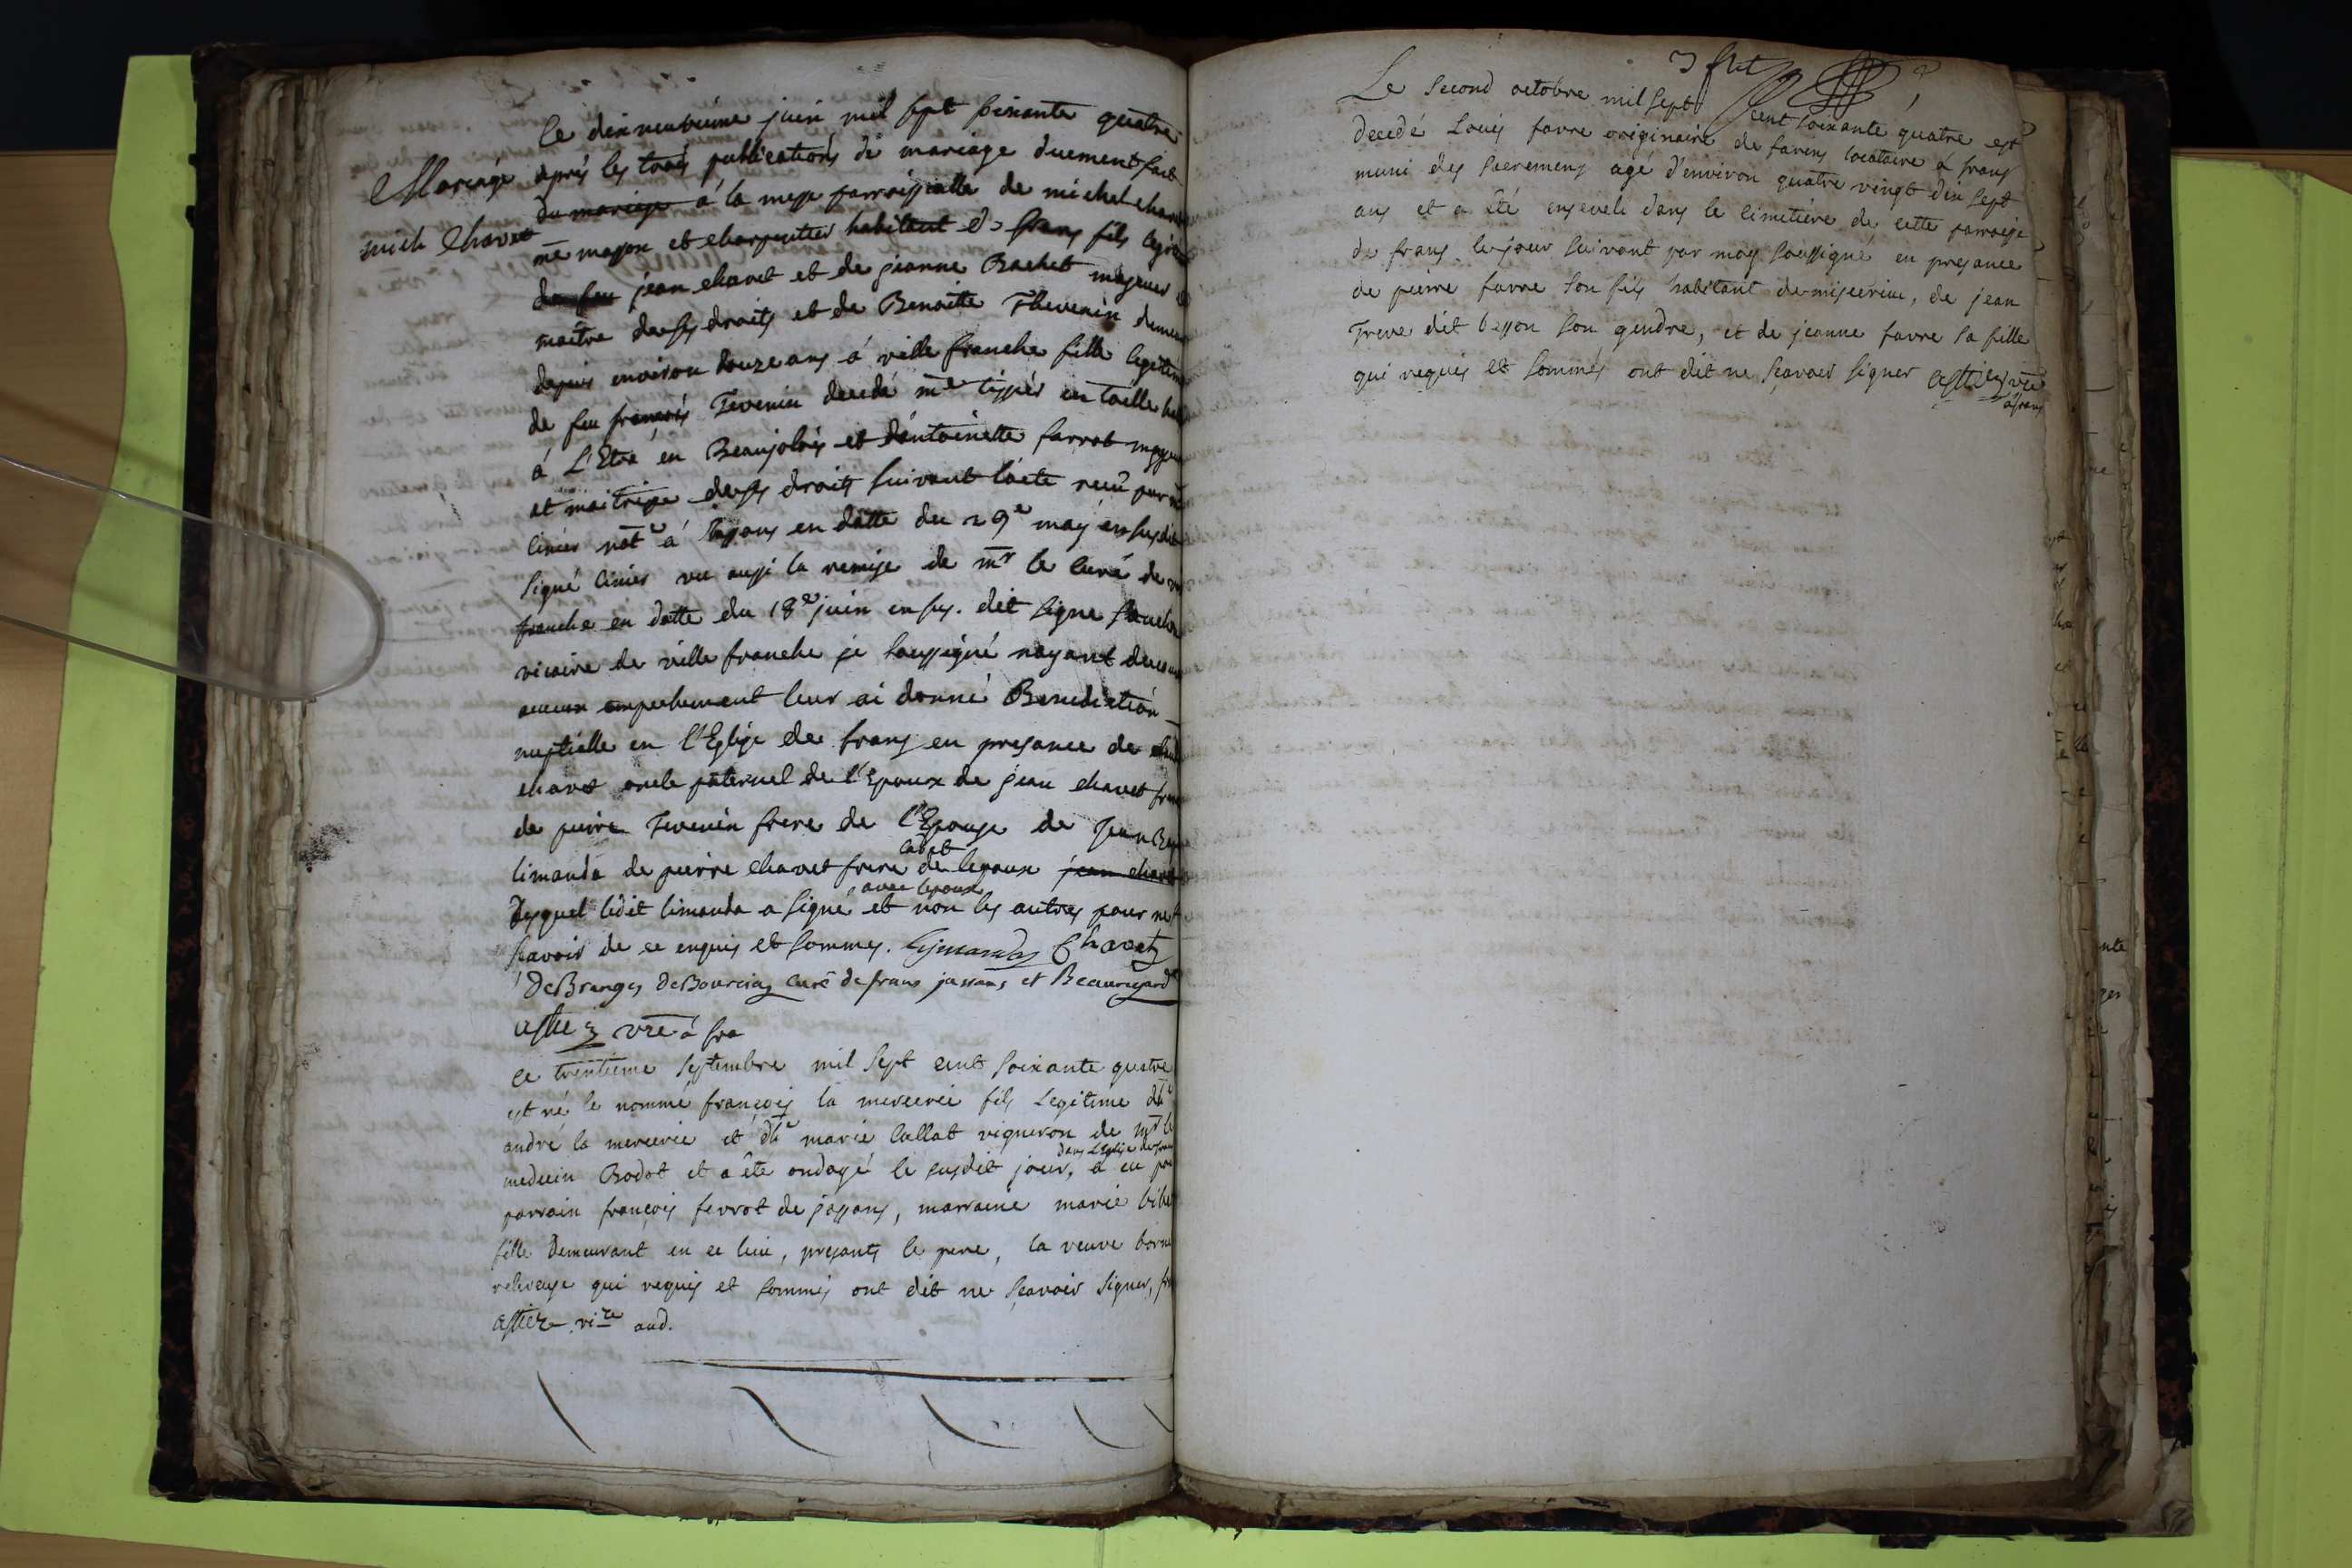 Mariage
mich Chavet
Ce dixneuvieme juin mil sept soixante quatre
après les trois publications de mariage duement fait
du mariage à la messe parroissialle de michel chav
me masson et charpentier habitant de frans fils legi
de feu jean chavet et de jeanne Bachet majeur
maitre de ses droits et de Benoitte Thevenin demeu
depuis environ douze ans à ville franche fille legitim
de feu françois Tevenin decedé me tissier en toille
à L'Etra en Beaujolois et d'antoinette farrot
et maitrisse de ses droits suivant l'acte recu par
notre à en datte du 29e may ensusdit
signé vu aussi la remise de mr le curé de
franche en datte du 18e juin ensus. dit signe
vicaire de ville franche je soussigné nayant
aucun empechement leur ai donné Benediction
nuptialle en l'Eglise de frans en presance de
chavet oncle paternel de l'Epoux de jean chavet
de pierre Tevenin frere de l'Epouse de
limanda de pierre chavet frere cadet de lepoux jean chavet
desquel ledit limanda a signé avec lepoux et non les autres pour ne
scavoir de ce enquis et sommes. Limandas Chavet
DeBranges DeBourcia curé de frans jassans et Beauregard
astier vre à fra
Ce trentieme septembre mil sept cent soixante quatre
est né le nommé françois la mercerie fils Legitime
andré la mercerie et marie Callat vigneron de mr le
medecin Bodot et a été ondoyé le susdit jour, dans l'Eglise de a eu
parrain françois ferrot de jassans, marraine marie
fille demeurant en ce lieu, presants le pere, la veuve
releveuse qui requis et sommés ont dit ne scavoir signer,
astier vire aud.
Le second octobre mil sept cent soixante quatre est
decedé Louis favre originaire de locataire à frans
muni des sacremens agé d'environ quatre vingt dix sept
ans et a été enseveli dans le cimetière de cette parroisse
de frans le jour suivant par moy soussigné en presance
de pierre favre son fils habitant de miserieu, de jean
Treve dit besson son gendre, et de jeanne favre sa fille
qui requis et sommés ont dit ne scavoir signer astier vre
à frans